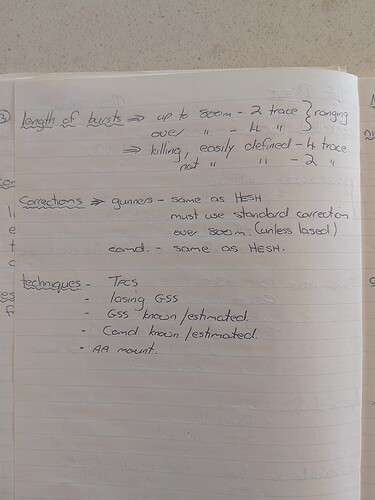 ③ length of bursts ⇒ up to 800m - 2 trace } ranging
over " - 4 "
⇒ killing, easily defined - 4 trace
not " " - 2 "
Corrections ⇒ gunners - same as HESH
must use standard correction
over 800m. (unless lased)
comd. - same as HESH.
techniques - TFCS
- lasing GSS
- GSS known/estimated.
- Comd known/estimated.
- AA mount.